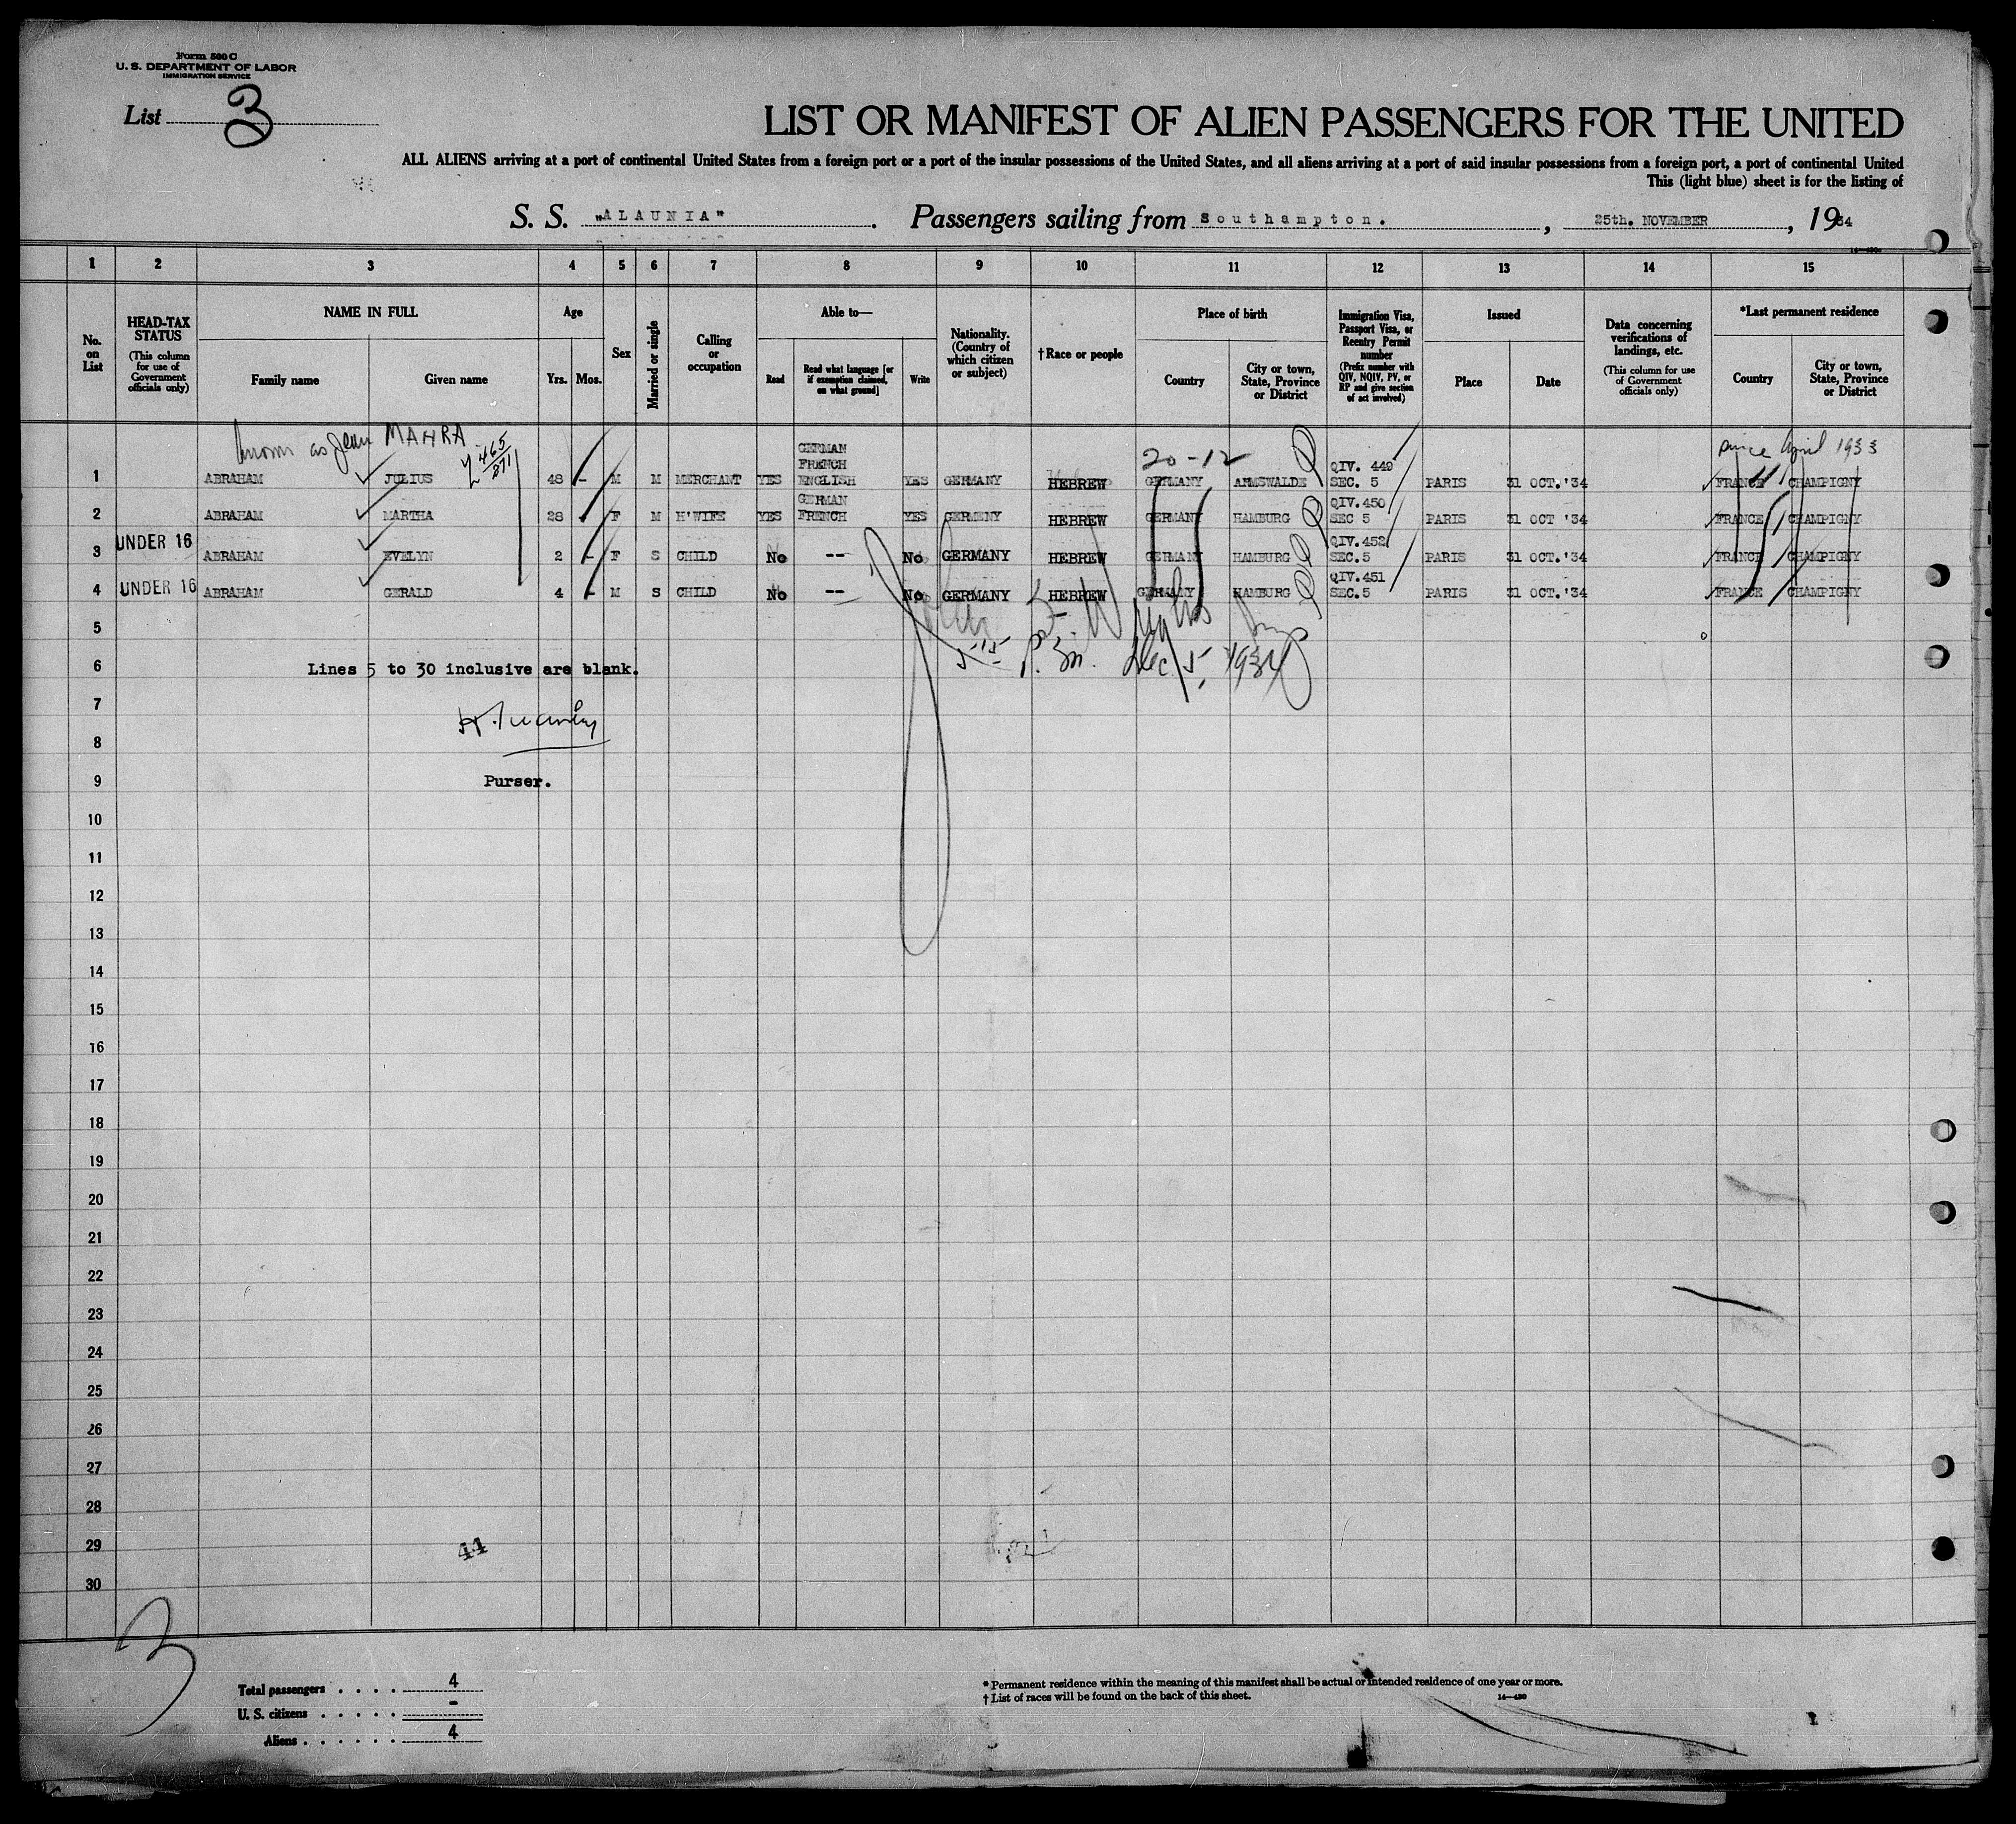 Form 500 C
U. S. DEPARTMENT OF LABOR
IMMIGRATION SERVICE
List 3
LIST OR MANIFEST OF ALIEN PASSENGERS FOR THE UNITED
ALL ALIENS arriving at a port of continental United States from a foreign port or a port of the insular possessions of the United States, and all aliens arriving at a port of said insular possessions from a foreign port, a port of continental United
This (light blue) sheet is for the listing of
S. S. "ALAUNIA". Passengers sailing from Southampton., 25th. NOVEMBER, 1934
1 2 3 4 5 6 7 8 9 10 11 12 13 14 15
No. on List
HEAD-TAX STATUS (This column for use of Government officials only)
NAME IN FULL
Family name Given name
Age
Yrs. Mos.
Sex
Married or single
Calling or occupation
Able to—
Read
Read what language [or if exemption claimed, on what ground]
Write
Nationality. (Country of which citizen or subject)
† Race or people
Place of birth
Country
City or town, State, Province or District
Immigration Visa, Passport Visa, or Reentry Permit number (Prefix number with QIV, NQIV, PV, or RP and give section of act involved)
Issued
Place Date
Data concerning verifications of landings, etc. (This column for use of Government officials only)
*Last permanent residence
Country
City or town, State, Province or District
known as Jean MAHRA
465/871
20-12
since April 1933
1 ABRAHAM JULIUS 48 - M M MERCHANT YES GERMAN FRENCH ENGLISH YES GERMANY HEBREW GERMANY ARMSWALDE QIV. 449 SEC. 5 PARIS 31 OCT.'34 FRANCE CHAMPIGNY
2 ABRAHAM MARTHA 28 - F M H'WIFE YES GERMAN FRENCH YES GERMENY HEBREW GERMANY HAMBURG QIV.450 SEC 5 PARIS 31 OCT '34 FRANCE CHAMPIGNY
3 UNDER 16 ABRAHAM EVELYN 2 - F S CHILD No -- No GERMANY HEBREW GERMANY HAMBURG QIV.452 SEC.5 PARIS 31 OCT.'34 FRANCE CHAMPIGNY
4 UNDER 16 ABRAHAM GERALD 4 - M S CHILD No -- No GERMANY HEBREW GERMANY HAMBURG QIV.451 SEC.5 PARIS 31 OCT.'34 FRANCE CHAMPIGNY
5
5 15 P. m. Dec 5, 1934
6 Lines 5 to 30 inclusive are blank.
7
8
9 Purser.
10
11
12
13
14
15
16
17
18
19
20
21
22
23
24
25
26
27
28
29 44
30
3
Total passengers . . . . 4
U. S. citizens . . . . . -
Aliens . . . . . . 4
* Permanent residence within the meaning of this manifest shall be actual or intended residence of one year or more.
† List of races will be found on the back of this sheet.
14—430